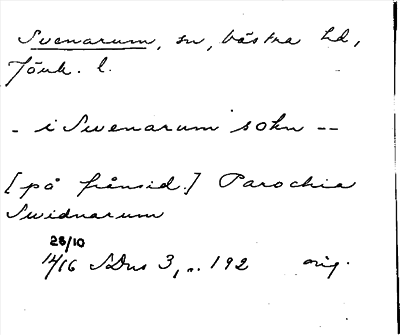 Svenarum, sn, Västra hd,
Jönk. l.
- i Swenarum sokn --
[på frånsid.] Parochia
Swidnarum
28/10
1416 SDns 3, s. 192 orig.